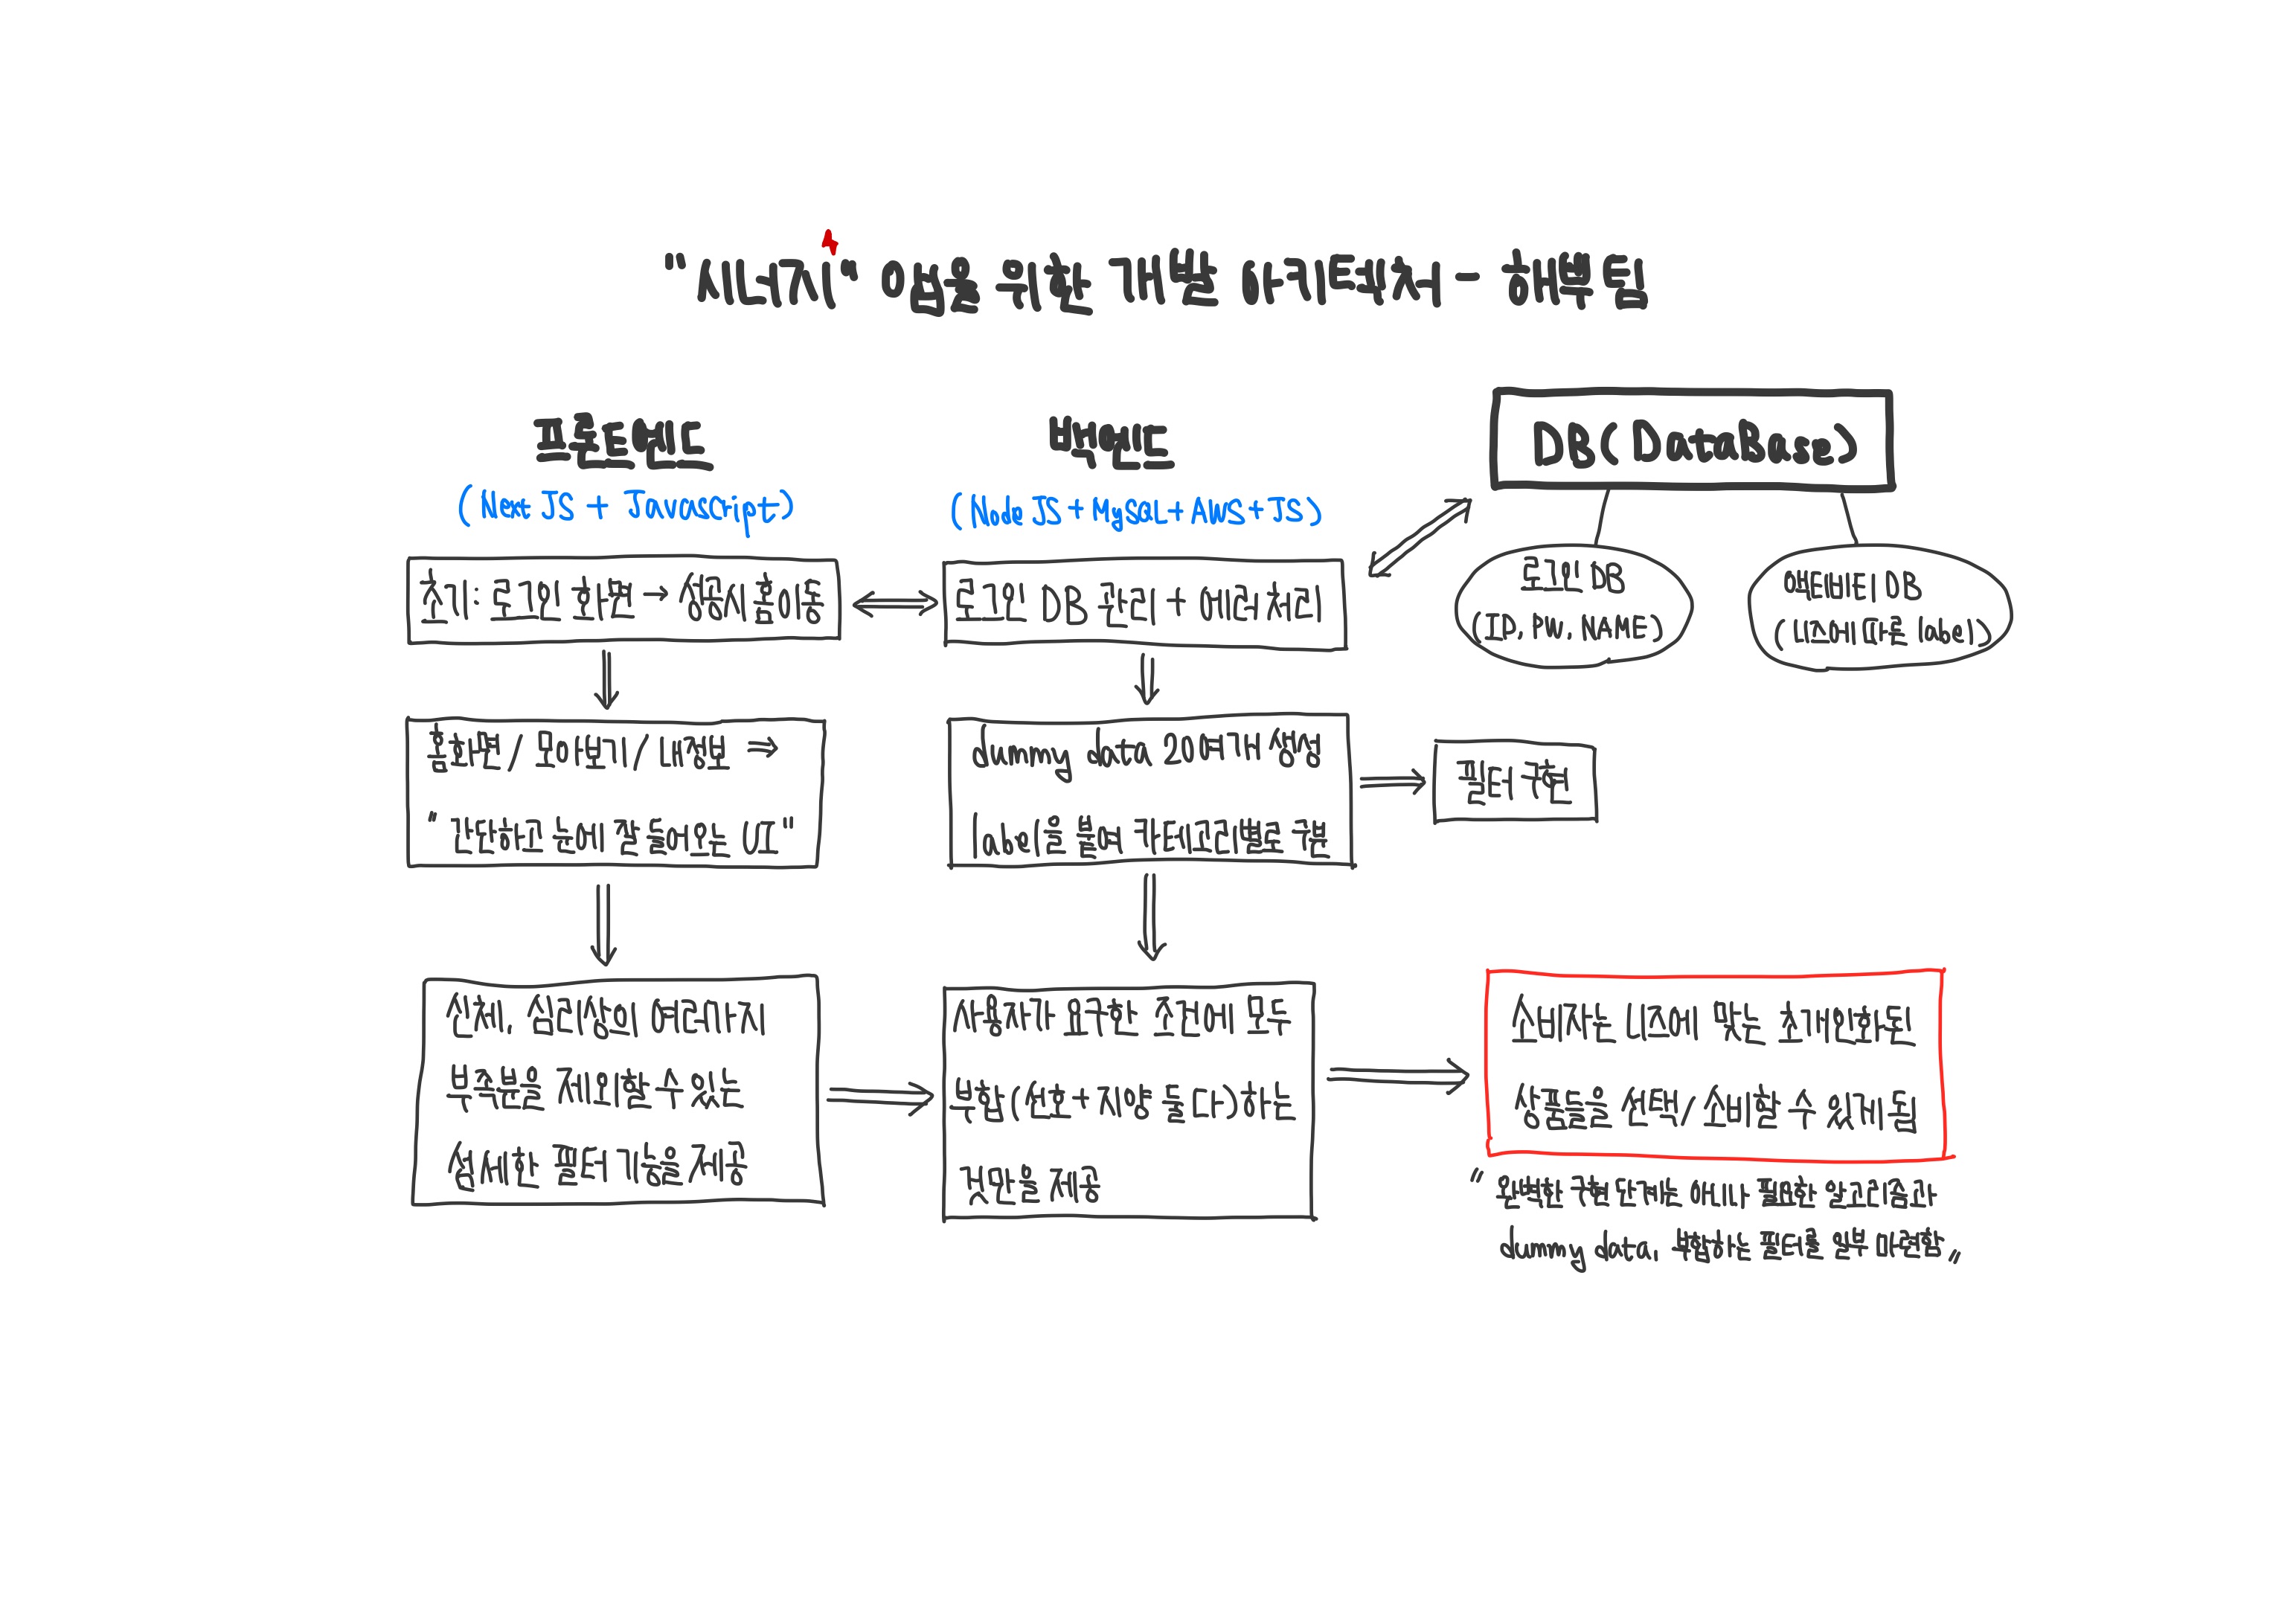 "시너지" 앱을 위한 개발 아키텍처 - 해뿌팀
프론트엔드
(Next JS + Javascript)
초기: 로그인 화면 → 성공시 홈 이동
홈화면 / 모아보기 / 내정보 ⇒
"간단하고 눈에 잘 들어오는 UI"
신체, 심리상의 여러가지
부족분을 제외할 수 있는
섬세한 필터 기능을 제공
백엔드
(Node JS + MySQL + AWS + JS)
로그인 DB 관리 + 에러처리
dummy data 20여개 생성
label을 붙여 카테고리별로 구분
사용자가 요구한 조건에 모두
부합(선호 + 지양 둘 다)하는
것만을 제공
DB (DataBase)
로그인 DB
(ID, PW, NAME)
액티비티 DB
(니즈에 따른 label)
필터 구현
소비자는 니즈에 맞는 초개인화된
상품들을 선택/소비할 수 있게 됨
"완벽한 구현 단계는 아니나 필요한 알고리즘과
dummy data, 부합하는 필터를 일부 마련함"